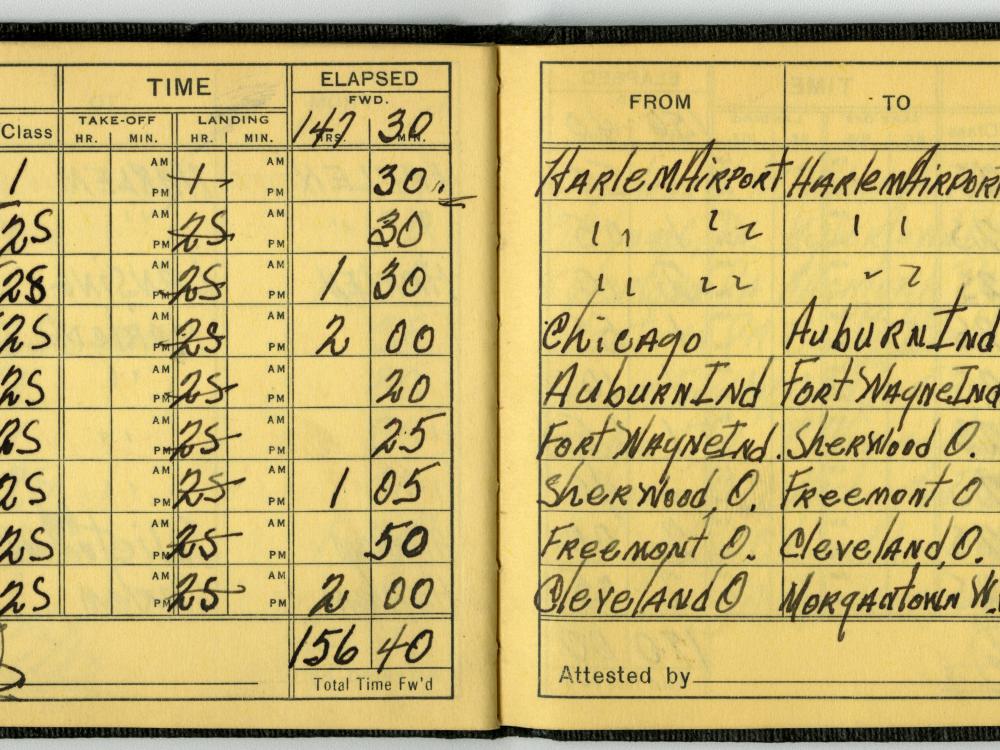 TIME ELAPSED
FWD.
Class TAKE-OFF LANDING 147 30
HR. MIN. HR. MIN. HRS. MIN.
1 AM PM 1 AM PM 30
2S AM PM 2S AM PM 30
2S AM PM 2S AM PM 1 30
2S AM PM 2S AM PM 2 00
2S AM PM 2S AM PM 20
2S AM PM 2S AM PM 25
2S AM PM 2S AM PM 1 05
2S AM PM 2S AM PM 50
2S AM PM 2S AM PM 2 00
156 40
Total Time Fw'd
FROM TO
Harlem Airport Harlem Airport
" " " "
" " "
Chicago Auburn Ind
Auburn Ind Fort Wayne Ind
Fort Wayne Ind. Sherwood O.
Sherwood, O. Freemont O
Freemont O. Cleveland, O.
Cleveland O Morgantown W.
Attested by